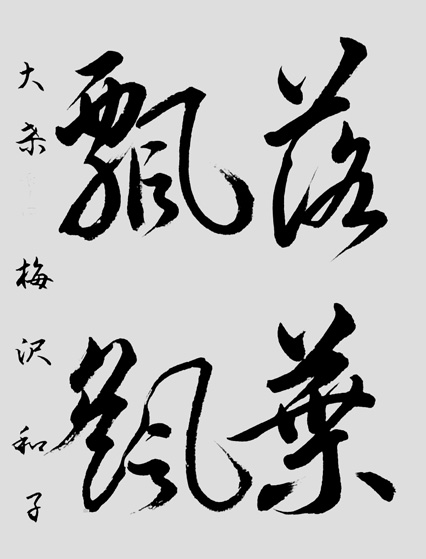 落葉
飄颻
大 梅沢和子